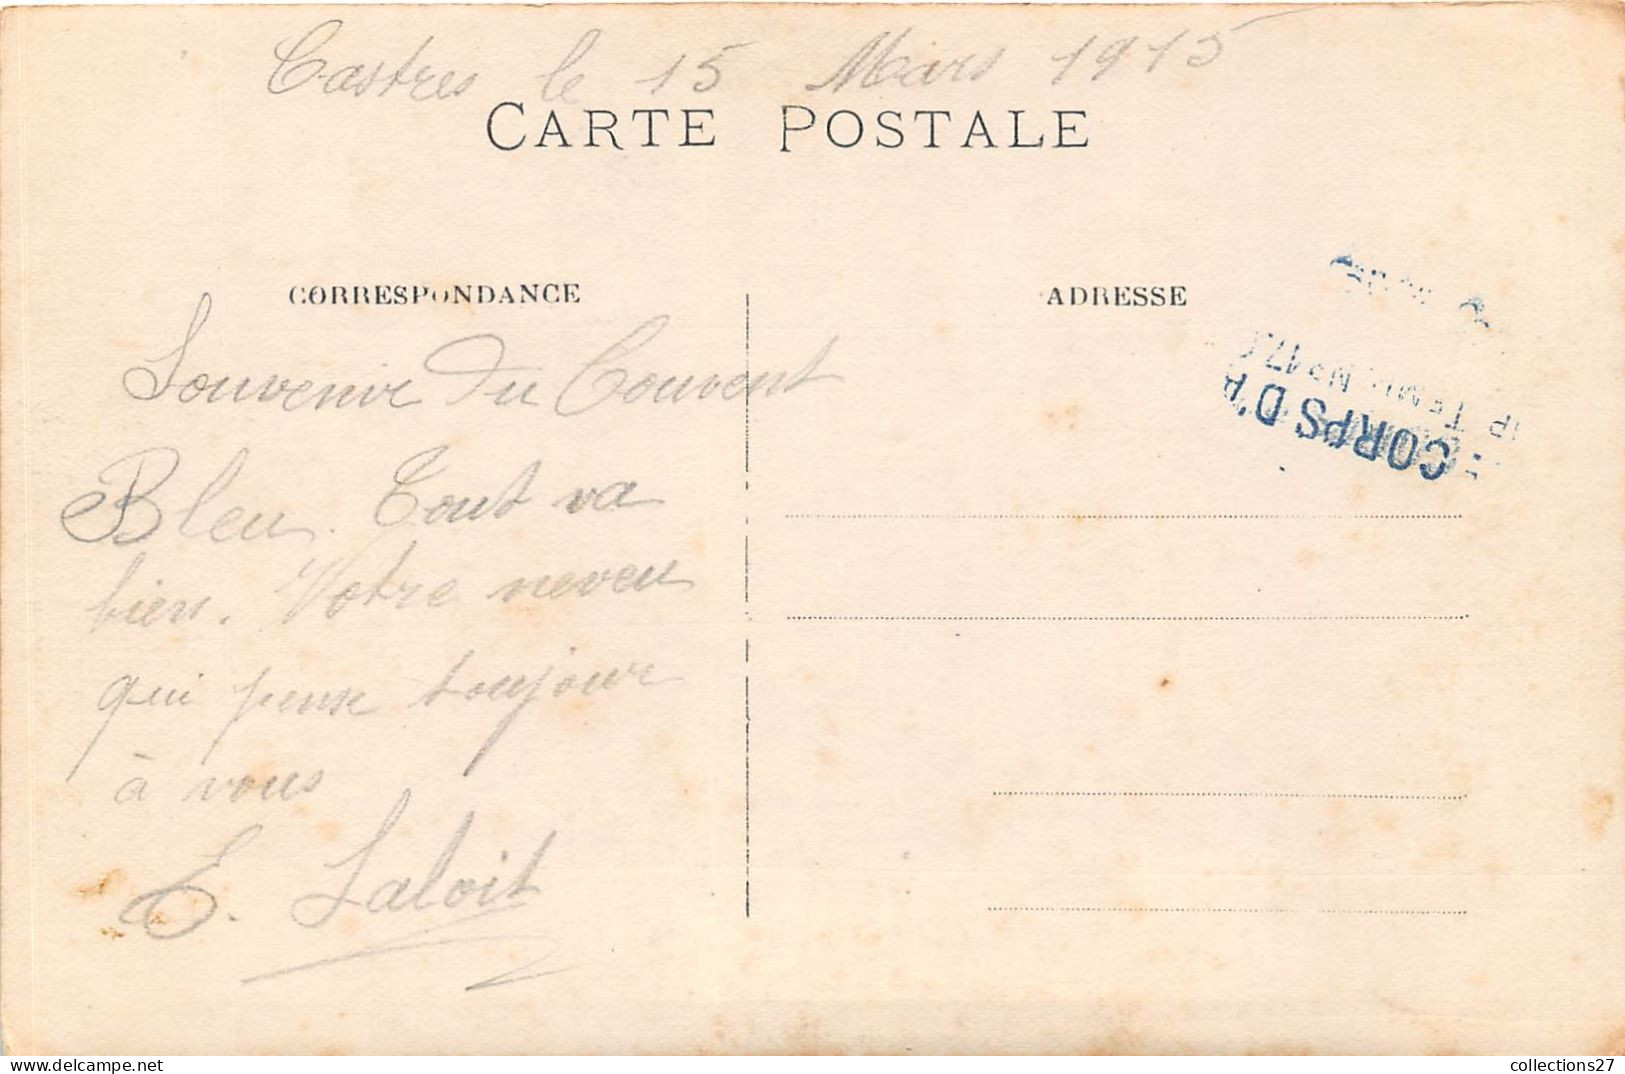 Castres le 15 Mars 1915
CARTE POSTALE
CORRESPONDANCE
ADRESSE
Souvenir du Couvent
Bleu. Tout va
bien. Votre neveu
qui pense toujour
à vous
E. Laloit
CORPS D'A
collections27